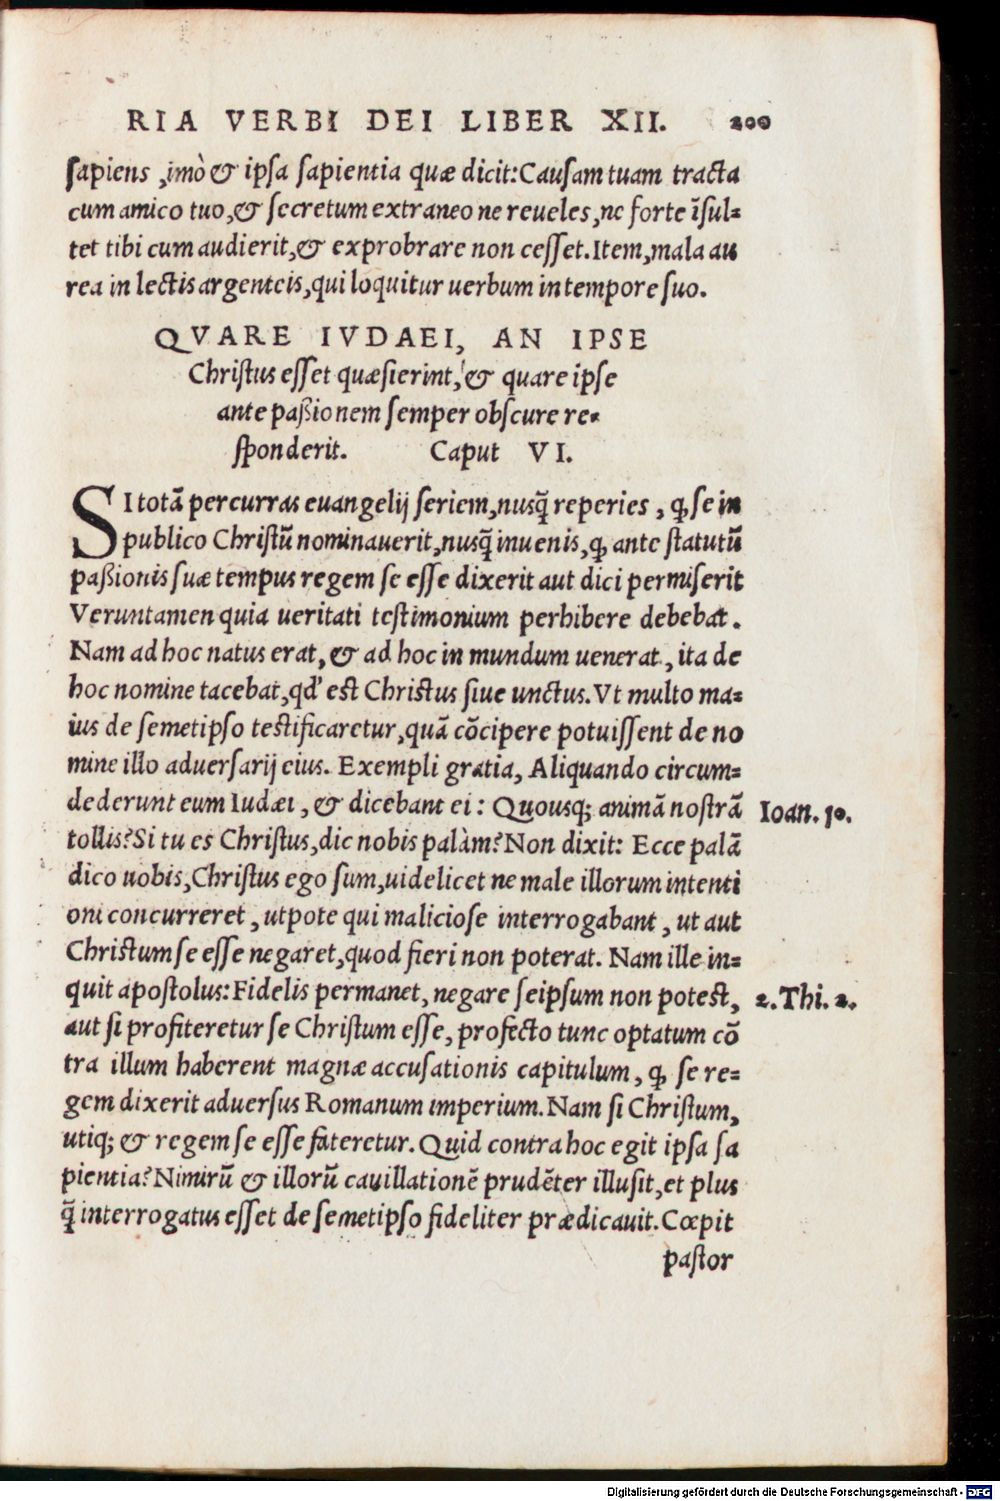 RIA VERBI DEI LIBER XII. 200
sapiens ,imò & ipsa sapientia quæ dicit:Causam tuam tracta
cum amico tuo,& secretum extraneo ne reueles,ne forte īsul=
tet tibi cum audierit,& exprobrare non cesset.Item,mala au
rea in lectis argenteis,qui loquitur uerbum in tempore suo.
QVARE IVDAEI, AN IPSE
Christus esset quæsierint, & quare ipse
ante paßionem semper obscure re=
sponderit. Caput VI.
SI totā percurras euangelij seriem,nusq̃ reperies , ꝙ se in
publico Christū nominauerit,nusq̃ inuenis,ꝙ ante statutū
paßionis suæ tempus regem se esse dixerit aut dici permiserit
Veruntamen quia ueritati testimonium perhibere debebat.
Nam ad hoc natus erat,& ad hoc in mundum uenerat, ita de
hoc nomine tacebat,qd' est Christus siue unctus.Vt multo ma=
ius de semetipso testificaretur,quā cōcipere potuissent de no
mine illo aduersarij eius. Exempli gratia, Aliquando circum=
dederunt eum Iudæi , & dicebant ei : Quousq; animā nostrā
Ioan. 10.
tollis?Si tu es Christus,dic nobis palàm?Non dixit: Ecce palā
dico uobis,Christus ego sum,uidelicet ne male illorum intenti
oni concurreret , utpote qui maliciose interrogabant , ut aut
Christum se esse negaret,quod fieri non poterat. Nam ille in=
quit apostolus:Fidelis permanet, negare seipsum non potest,
2. Thi. 2.
aut si profiteretur se Christum esse, profecto tunc optatum cō
tra illum haberent magnæ accusationis capitulum, ꝙ se re=
gem dixerit aduersus Romanum imperium.Nam si Christum,
utiq; & regem se esse fateretur.Quid contra hoc egit ipsa sa
pientia?Nimirū & illorū cauillationē prudēter illusit,et plus
q̃ interrogatus esset de semetipso fideliter prædicauit.Cœpit
pastor
Digitalisierung gefördert durch die Deutsche Forschungsgemeinschaft - DFG